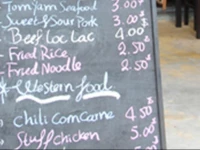 Tom Yam Seafood 3.00$
Sweet & Sour Pork 3.00$
Beef Loc Lac 4.00
Fried Rice 2.50$
Fried Noodle 2.50$
Western food
Chili Com Carne 4.50$
Stuff chicken 5.00$
5.00